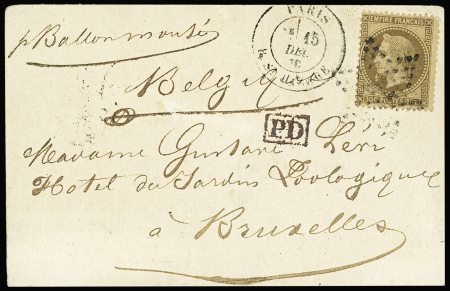 PARIS
p Ballon monté
15
DEC.
EMPIRE FRANÇAIS
Belgique
PD
Madame Gustave Levi
Hotel du Jardin Zoologique
à Bruxelles